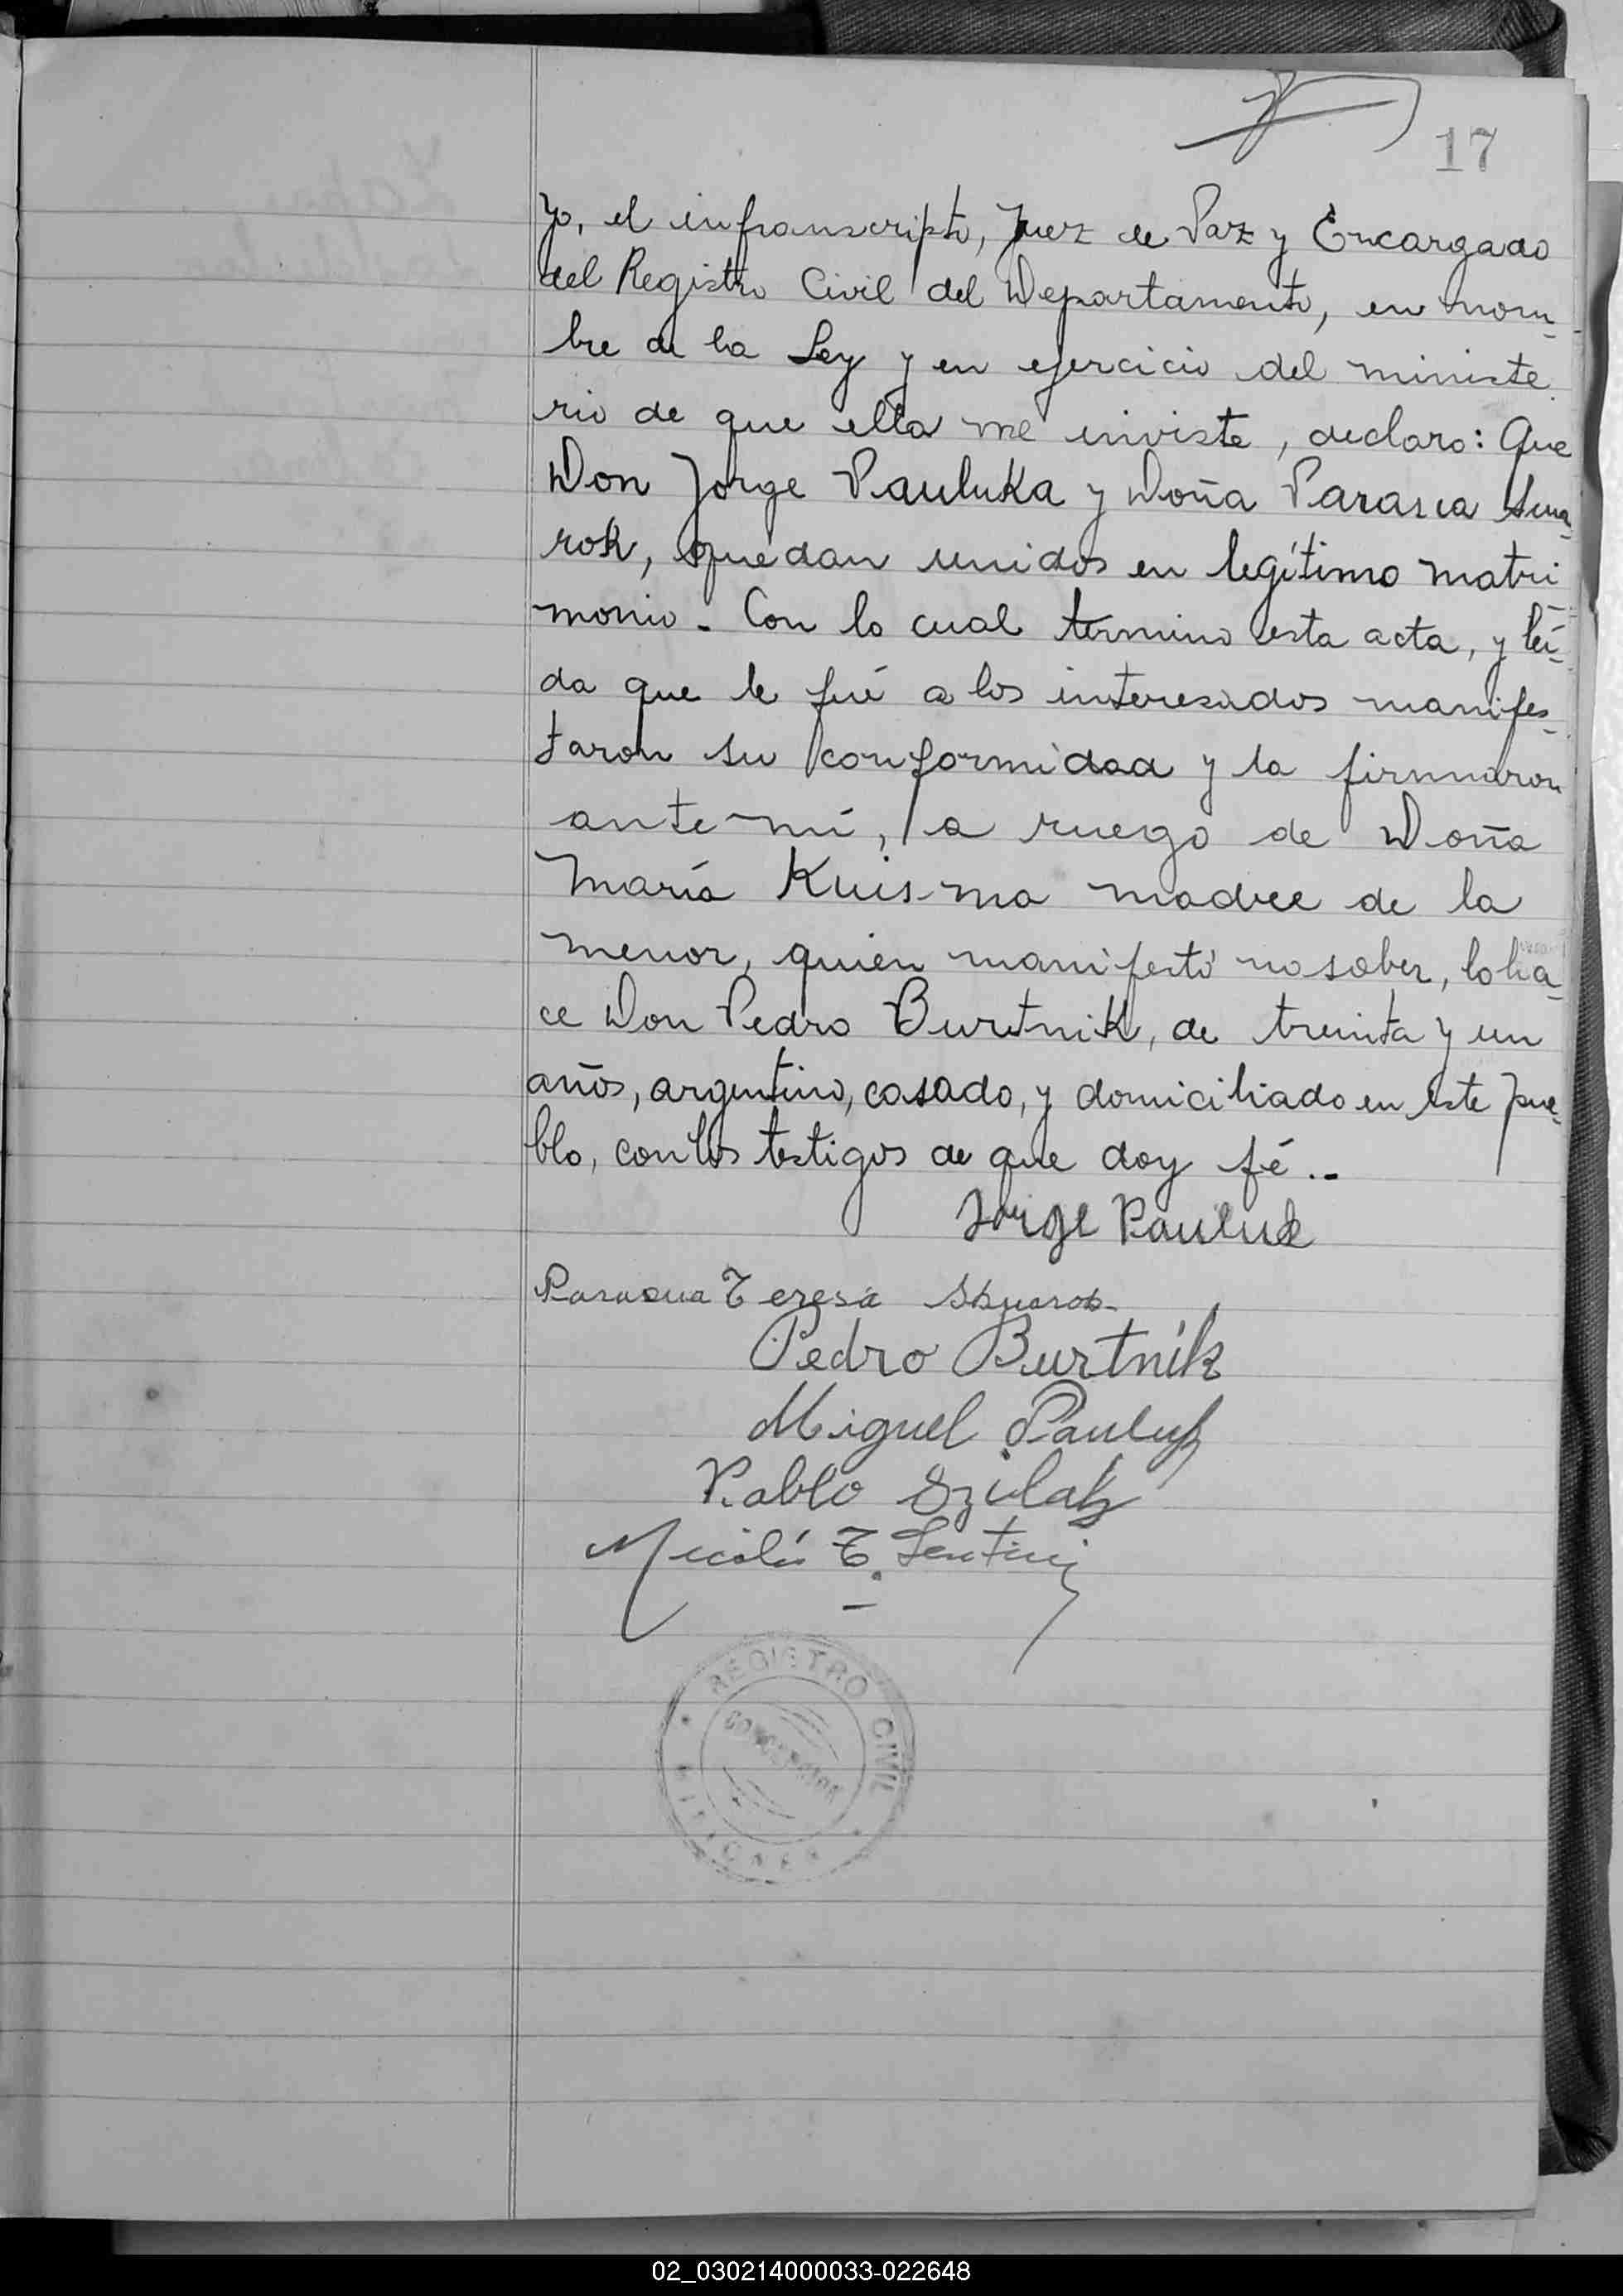 17
Yo, el infranscripto, Juez de Paz y Encargado
del Registro Civil del Departamento, en nom-
bre de la Ley y en ejercicio del ministe
rio de que ella me inviste, declaro: Que
Don Jorge Pauluka y Doña Parasca
rok, quedan unidos en legítimo matri-
monio. Con lo cual termino esta acta, y leí-
da que le fué a los interesados manifes-
taron su conformidad y la firmaron
ante mí, a ruego de Doña
María Kuisma madre de la
menor, quien manifestó no saber, lo ha-
ce Don Pedro Burtnik, de treinta y un
años, argentino, casado, y domiciliado en este pue-
blo, con los testigos de que doy fé..-
Jorge Pauluk
Teresa
Pedro Burtnik
Miguel Pauluk
Pablo Szilak
Nicolás T.
REGISTRO CIVIL
CONCEPCION
MISIONES
02_030214000033-022648